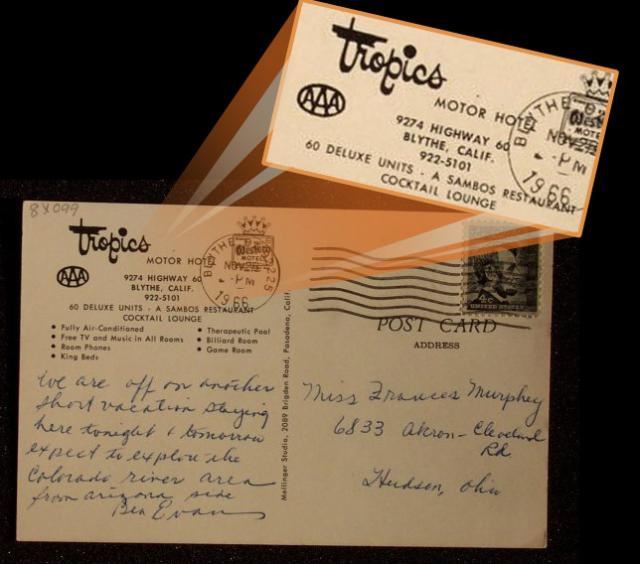 Tropics
AAA
MOTOR HOTEL
9274 HIGHWAY 60
BLYTHE, CALIF.
922-5101
60 DELUXE UNITS - A SAMBOS RESTAURANT
COCKTAIL LOUNGE
BLYTHE
Best
MOTEL
NOV
- PM
1966
8X099
Tropics
AAA
MOTOR HOTEL
9274 HIGHWAY 60
BLYTHE, CALIF.
922-5101
60 DELUXE UNITS - A SAMBOS RESTAURANT
COCKTAIL LOUNGE
BLYTHE 92225
MOTEL
NOV
- PM
1966
• Fully Air-Conditioned
• Free TV and Music in All Rooms
• Room Phones
• King Beds
• Therapeutic Pool
• Billiard Room
• Game Room
We are off on another
short vacation staying
here tonight & tomorrow
expect to explore the
Colorado river area
from arizona side
Ben Evans
Mellinger Studio, 2089 Brigden Road, Pasadena, Calif
4c
UNITED STATES
POST CARD
ADDRESS
Miss Frances Murphey
6833 Akron-Cleveland
Rd
Hudson, Ohio